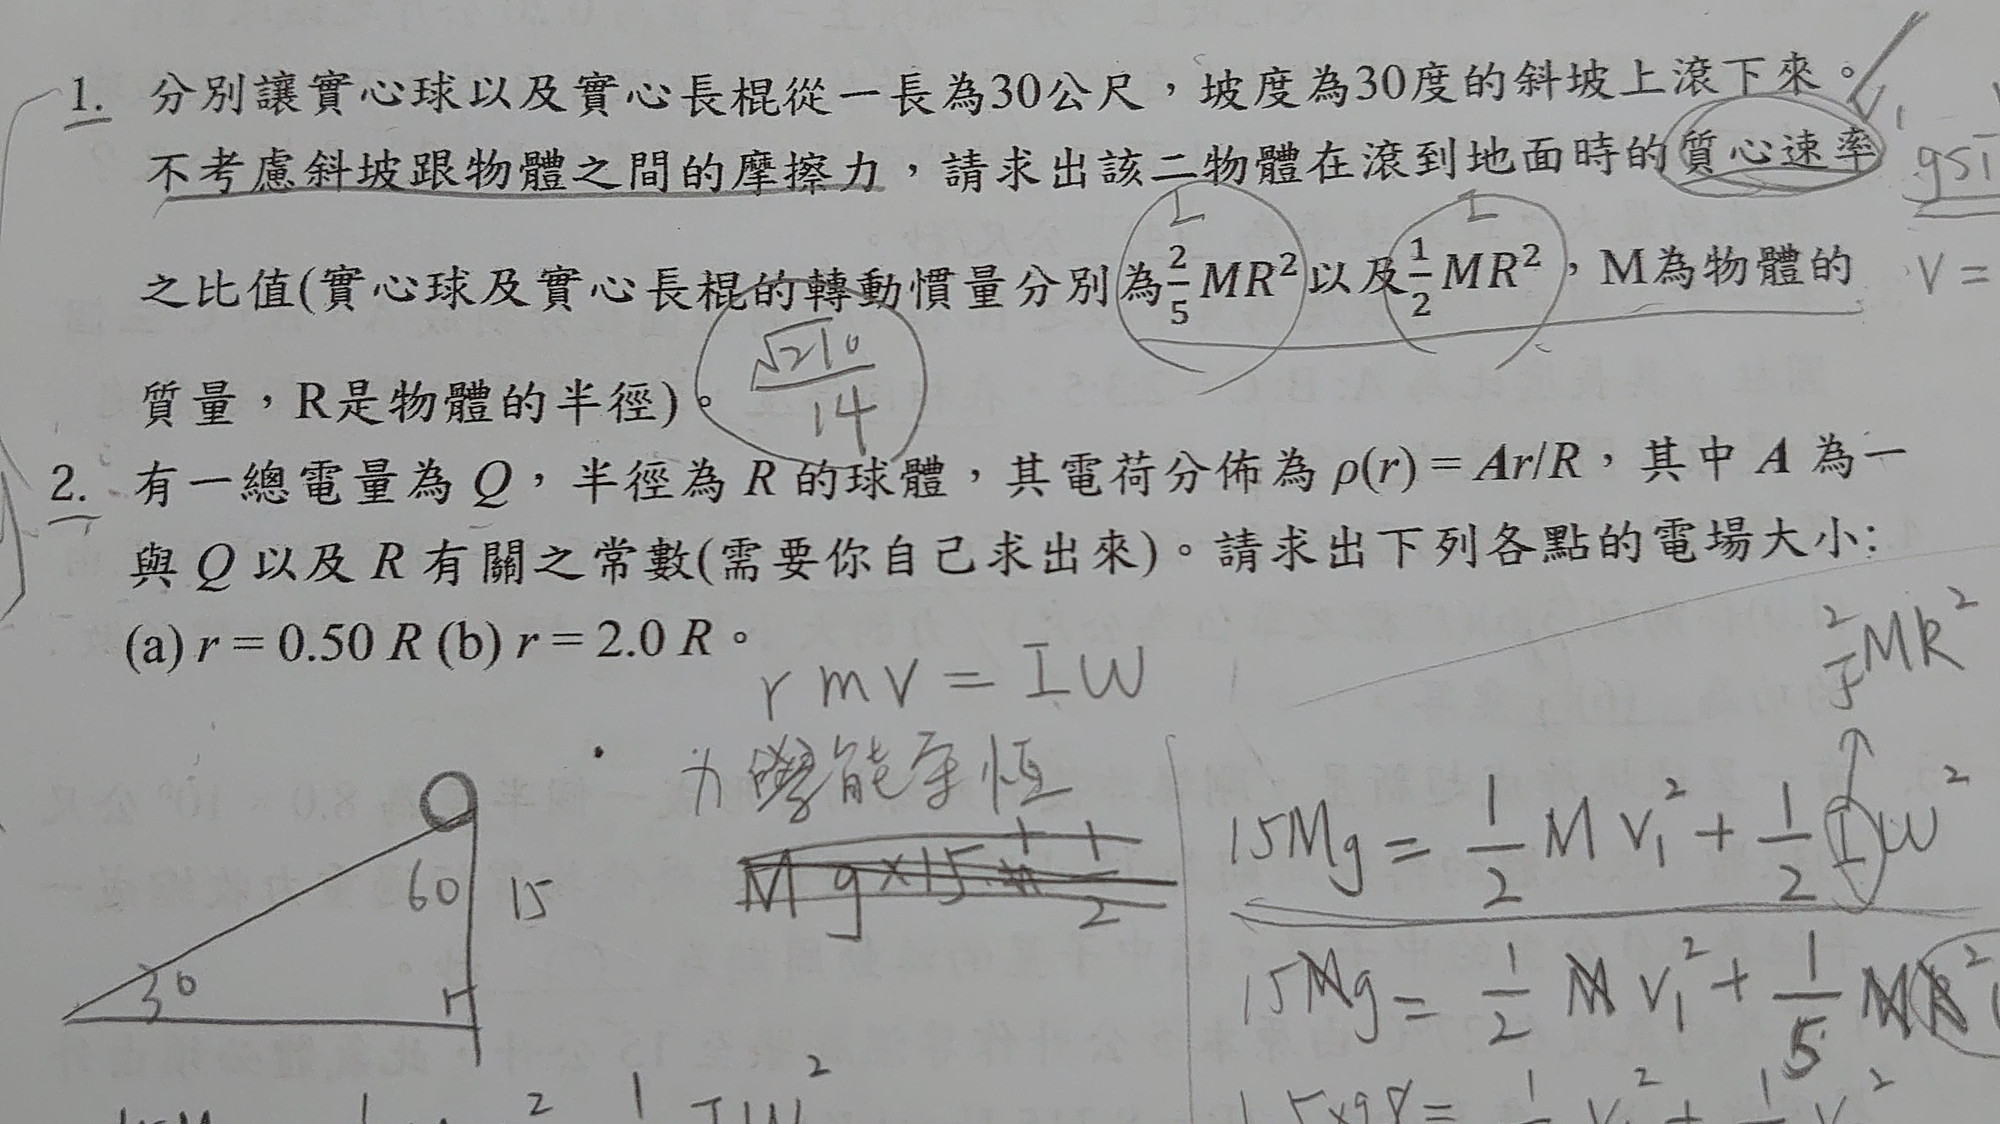 1. 分別讓實心球以及實心長棍從一長為30公尺，坡度為30度的斜坡上滾下來。
V₁
不考慮斜坡跟物體之間的摩擦力，請求出該二物體在滾到地面時的質心速率
I I
之比值(實心球及實心長棍的轉動慣量分別為2/5 MR²以及1/2 MR²，M為物體的
V =
質量，R是物體的半徑)。
√210/14
2. 有一總電量為 Q，半徑為 R 的球體，其電荷分佈為 ρ(r) = Ar/R，其中 A 為一
與 Q 以及 R 有關之常數(需要你自己求出來)。請求出下列各點的電場大小:
(a) r = 0.50 R (b) r = 2.0 R。
r m v = I W
2/5 MR²
力學能守恆
Mg×15
1/2
15Mg = 1/2 M V₁² + 1/2 I W²
60
15
30
15Mg = 1/2 M V₁² + 1/5 MR²